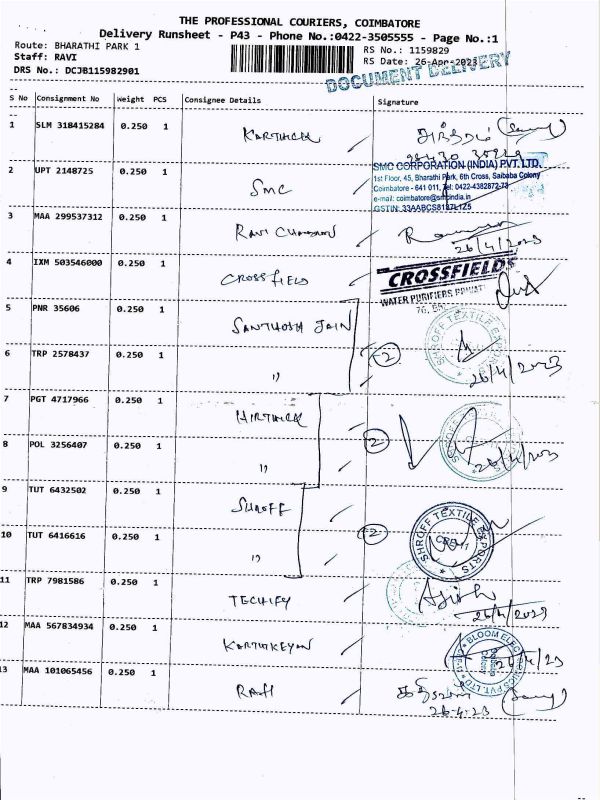 THE PROFESSIONAL COURIERS, COIMBATORE
Delivery Runsheet - P43 - Phone No.:0422-3505555 - Page No.:1
Route: BHARATHI PARK 1
RS No.: 1159829
Staff: RAVI
RS Date: 26-Apr-2023
DRS No.: DCJB115982901
DOCUMENT DELIVERY
S No Consignment No Weight PCS Consignee Details Signature
1 SLM 318415284 0.250 1 KARTHICK
2 UPT 2148725 0.250 1 SMC
SMC CORPORATION (INDIA) PVT. LTD.
1st Floor, 45, Bharathi Park, 6th Cross, Saibaba Colony
Coimbatore - 641 011, Tel: 0422-4382872-73
e-mail: coimbatore@smcindia.in
GSTIN: 33AABCS8187L1Z5
3 MAA 299537312 0.250 1 RAVI
26/4/2023
4 IXM 503546000 0.250 1 CROSSFIELD
CROSSFIELDS
WATER PURIFIERS
5 PNR 35606 0.250 1 SANTHOSH JAIN
SHROFF TEXTILE EXPORTS
6 TRP 2578437 0.250 1 " 2
26/4/2023
7 PGT 4717966 0.250 1 HIRTHICK
8 POL 3256407 0.250 1 " 2
26/4/2023
9 TUT 6432502 0.250 1 SHROFF
SHROFF TEXTILE EXPORTS
CBE-11
10 TUT 6416616 0.250 1 " 2
11 TRP 7981586 0.250 1 TECHIFY
26/4/2023
12 MAA 567834934 0.250 1 KARTHIKEYAN
26/4/23
13 MAA 101065456 0.250 1 RAFI
26-4-23